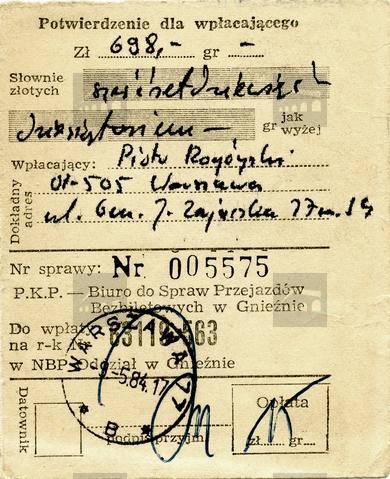 Potwierdzenie dla wpłacającego
Zł 698,- gr -
Słownie złotych sześćset dziewięćdziesiąt
gr jak wyżej
Wpłacający: Piotr
Dokładny adres 01-505 Warszawa
ul. Gen. J. Zajączka
Nr sprawy: Nr 005575
P.K.P. — Biuro do Spraw Przejazdów
Bezbiletowych w Gnieźnie
Do wpłaty
na r-k Nr
w NBP Oddział w Gnieźnie
WARSZAWA 77
-5.84.17
B
Datownik
podpis przyjm.
Opłata
zł gr